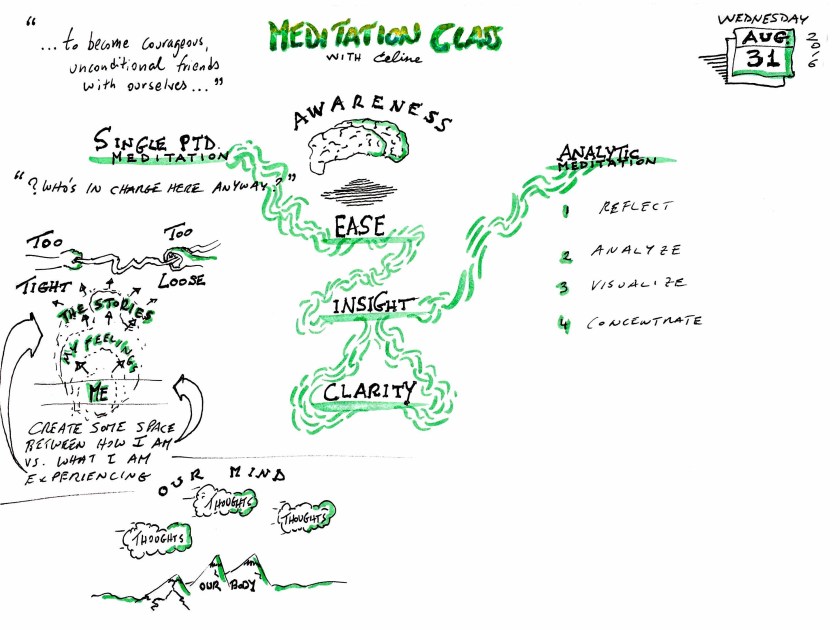 "
...to become courageous,
unconditional friends
with ourselves..."
MEDITATION CLASS
WITH Celine
WEDNESDAY
AUG.
31
2016
AWARENESS
SINGLE PTD.
MEDITATION
"?WHO'S IN CHARGE HERE ANYWAY?"
TOO TIGHT
TOO LOOSE
THE STORIES
MY FEELINGS
ME
CREATE SOME SPACE
BETWEEN HOW I AM
VS. WHAT I AM
EXPERIENCING
EASE
INSIGHT
CLARITY
ANALYTIC
MEDITATION
1 REFLECT
2 ANALYZE
3 VISUALIZE
4 CONCENTRATE
OUR MIND
THOUGHTS
THOUGHTS
THOUGHTS
OUR BODY